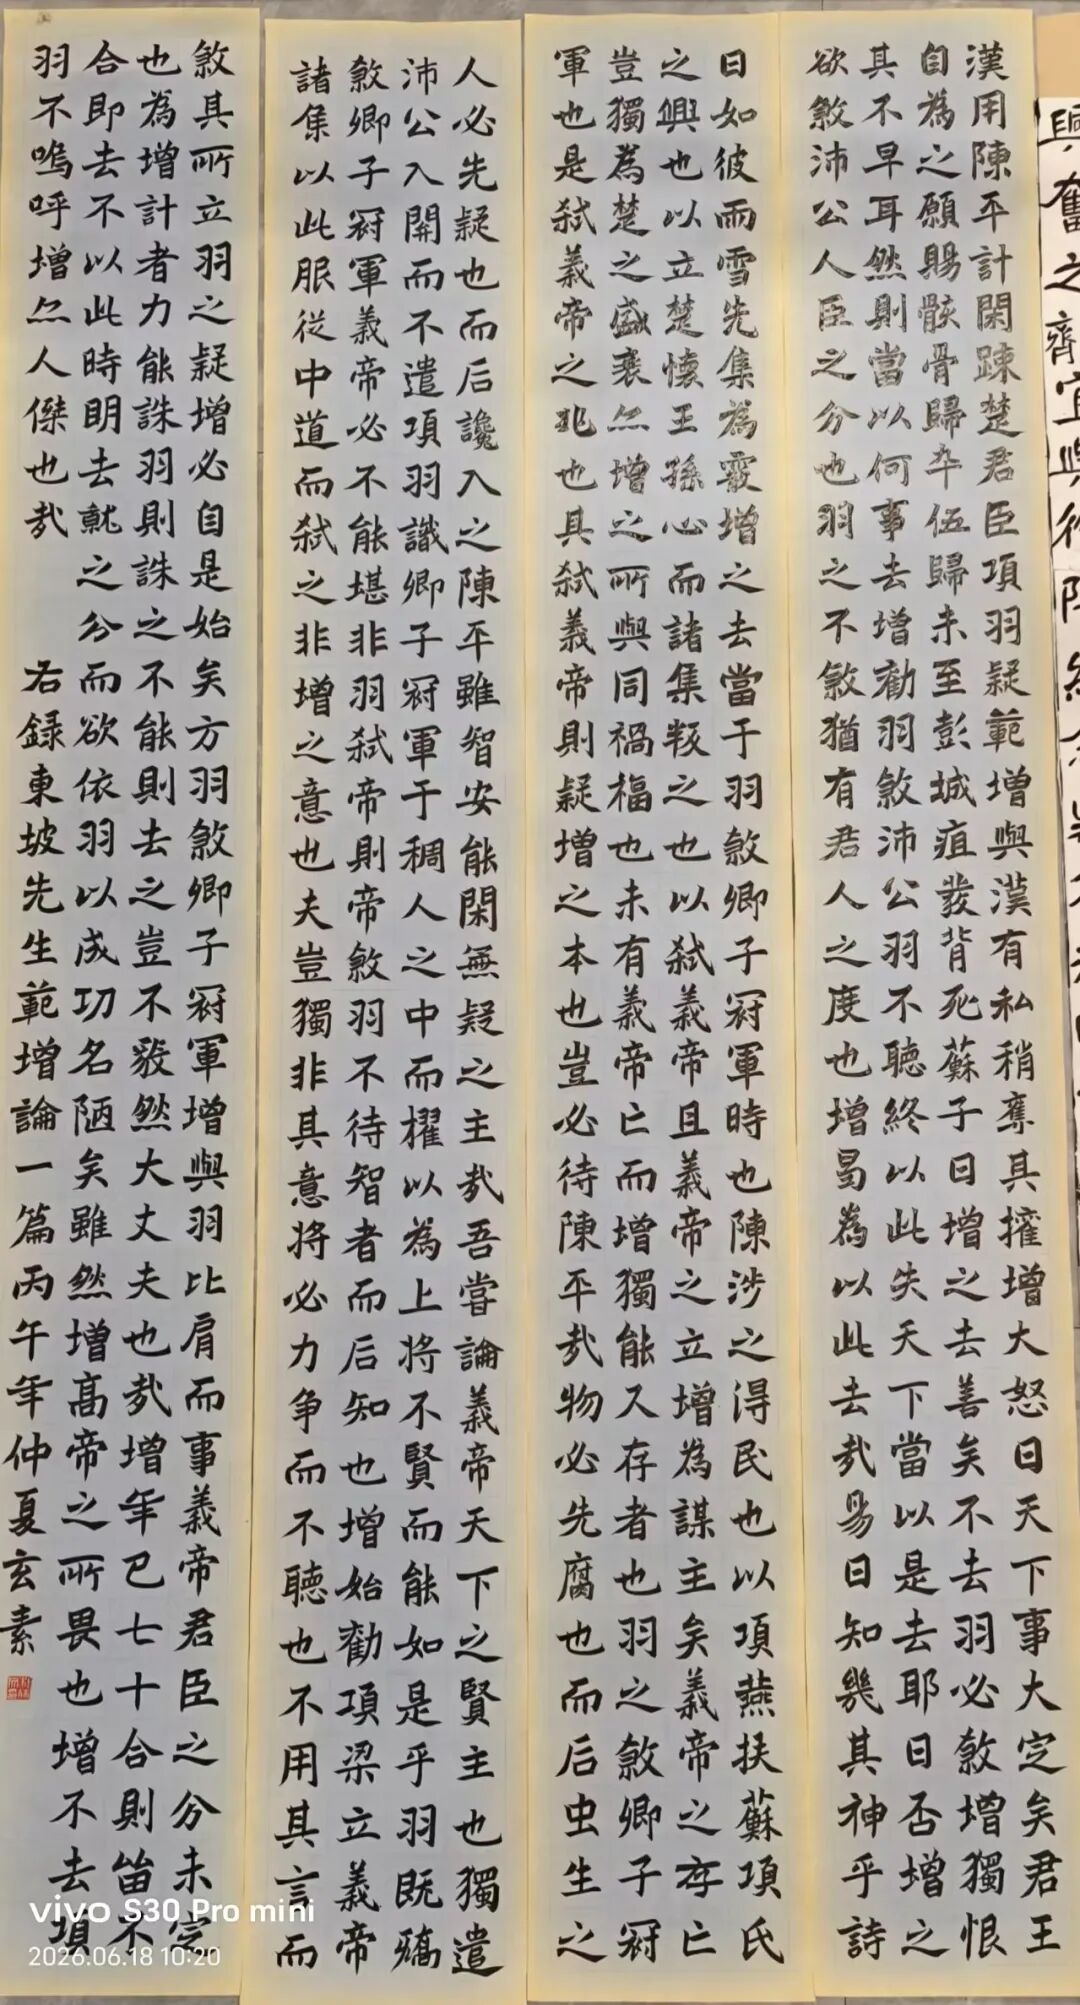 漢用陳平計閒疎楚君臣項羽疑範增與漢有私稍奪其權增大怒曰天下事大定矣君王
自為之願賜骸骨歸卒伍歸未至彭城疽發背死蘇子曰增之去善矣不去羽必殺增獨恨
其不早耳然則當以何事去增勸羽殺沛公羽不聽終以此失天下當以是去耶曰否增之
欲殺沛公人臣之分也羽之不殺猶有君人之度也增曷為以此去哉易曰知幾其神乎詩
曰如彼雨雪先集為霰增之去當于羽殺卿子冠軍時也陳涉之得民也以項燕扶蘇項氏
之興也以立楚懷王孫心而諸集叛之也以弒義帝且義帝之立增為謀主矣義帝之存亡
豈獨為楚之盛衰亦增之所與同禍福也未有義帝亡而增獨能久存者也羽之殺卿子冠
軍也是弒義帝之兆也其弒義帝則疑增之本也豈必待陳平哉物必先腐也而后虫生之
人必先疑也而后讒入之陳平雖智安能閒無疑之主哉吾嘗論義帝天下之賢主也獨遣
沛公入關而不遣項羽識卿子冠軍于稠人之中而擢以為上將不賢而能如是乎羽既矯
殺卿子冠軍義帝必不能堪非羽弒帝則帝殺羽不待智者而后知也增始勸項梁立義帝
諸集以此服從中道而弒之非增之意也夫豈獨非其意將必力爭而不聽也不用其言而
殺其所立羽之疑增必自是始矣方羽殺卿子冠軍增與羽比肩而事義帝君臣之分未定
也為增計者力能誅羽則誅之不能則去之豈不毅然大丈夫也哉增年已七十合則留不
合即去不以此時明去就之分而欲依羽以成功名陋矣雖然增高帝之所畏也增不去項
羽不嗚呼增亦人傑也哉 右錄東坡先生範增論一篇丙午年仲夏玄素
vivo S30 Pro mini
2026.06.18 10:20